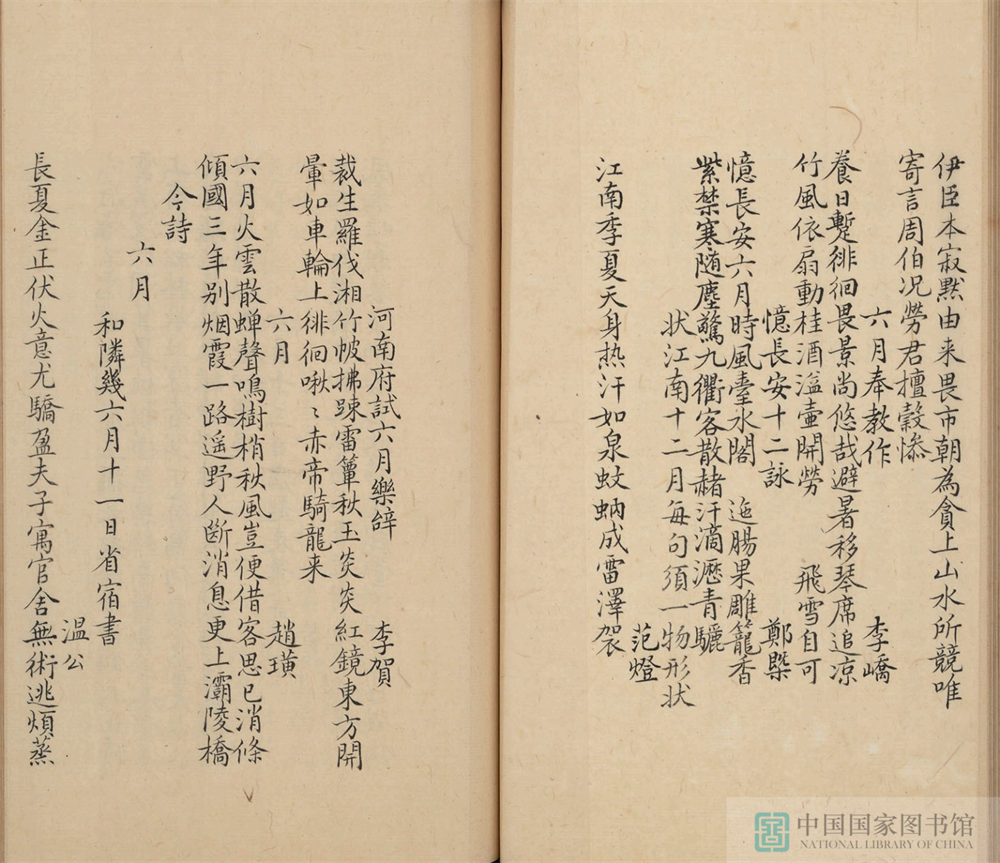 伊臣本寂默由来畏市朝為貪上山水所競唯
寄言周伯况勞君擅縠惨
六月奉教作 李嶠
養日蹔徘徊畏景尚悠哉避暑移琴席追凉
竹風依扇動桂酒溢壷開勞 飛雪自可
憶長安十二詠 鄭槩
憶長安六月時風臺水閣 迤腸果雕籠香
紫禁寒随塵驚九衢客散赭汗滴瀝青驪
状江南十二月每句須一物形状
范燈
江南季夏天身热汗如泉蚊蚋成雷澤袈
河南府試六月樂辝 李賀
裁生羅伐湘竹帔拂踈雷簟秋玉炎炎紅鏡東方開
暈如車輪上徘徊啾〻赤帝騎龍来
六月 趙璜
六月火雲散蝉聲鳴樹梢秋風豈便借客思已消條
傾國三年别烟霞一路遥野人断消息更上灞陵橋
今詩
六月
和隣幾六月十一日省宿書
温公
長夏金正伏火意尤驕盈夫子寓官舍無術逃煩蒸
中国国家图书馆
NATIONAL LIBRARY OF CHINA